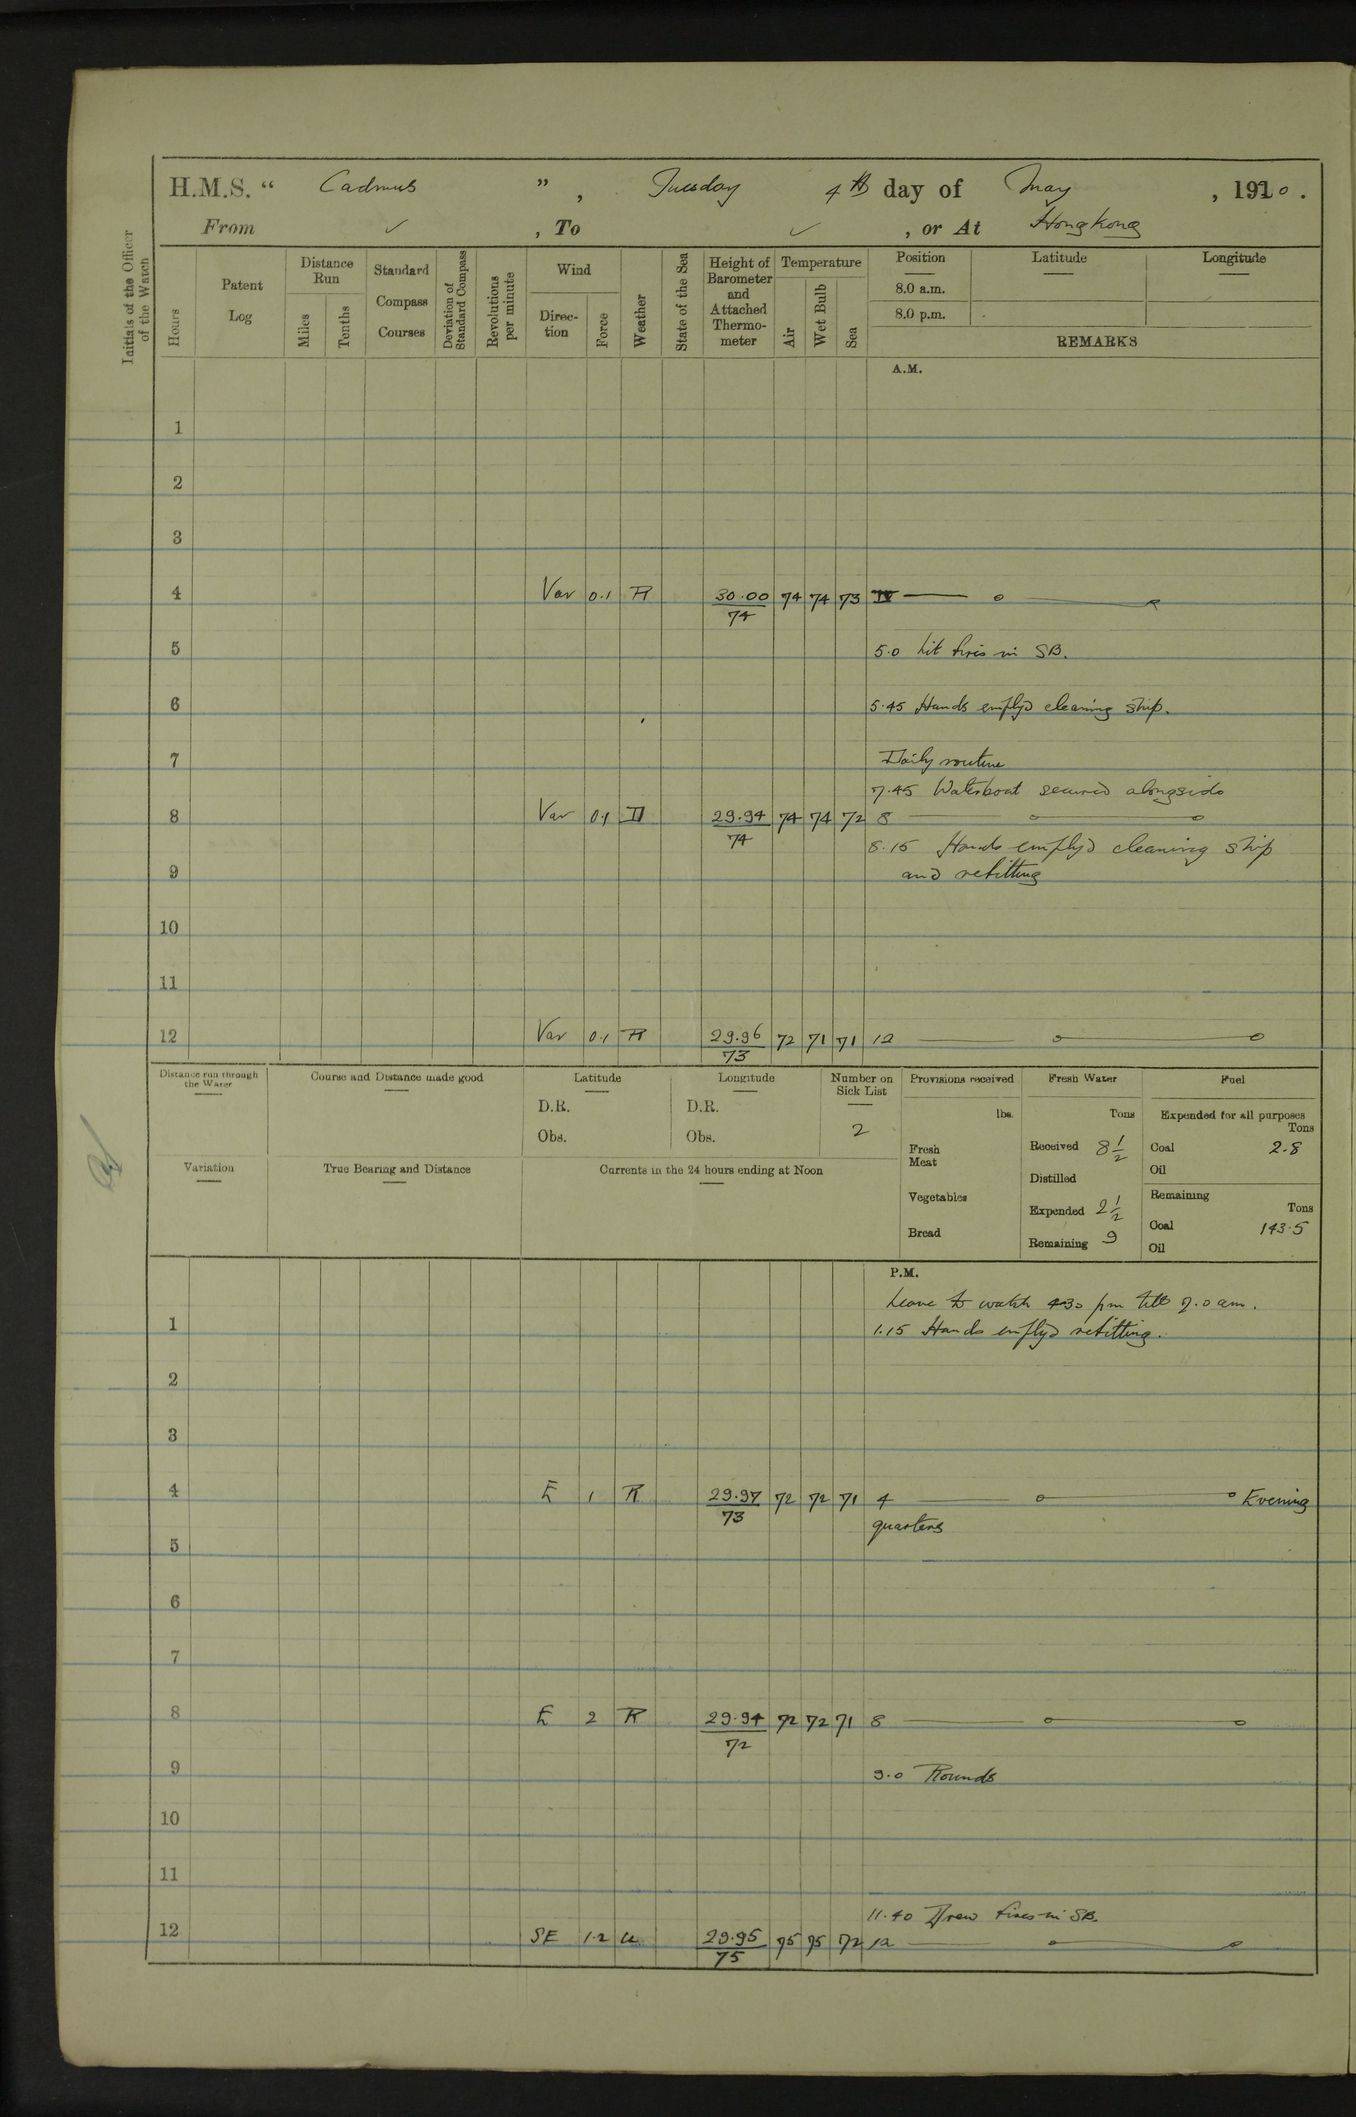 H.M.S. “ Cadmus ” , Tuesday 4th day of May , 1910 .
From ✓ , To ✓ , or At Hongkong
Initials of the Officer of the Watch
Hours
Patent Log
Distance Run
Miles
Tenths
Standard Compass Courses
Deviation of Standard Compass
Revolutions per minute
Wind
Direction
Force
Weather
State of the Sea
Height of Barometer and Attached Thermometer
Temperature
Air
Wet Bulb
Sea
Position
8.0 a.m.
8.0 p.m.
Latitude
Longitude
REMARKS
A.M.
1
2
3
4 Var 0.1 R 30.00 74 74 73
74
5 5.0 Lit fires in SB.
6 5.45 Hands emplyd cleaning ship.
7 Daily routine
7.45 Waterboat secured alongside
8 Var 0.1 29.94 74 74 72 8
74
8.15 Hands emplyd cleaning ship
9 and refitting
10
11
12 Var 0.1 R 29.96 72 71 71 12
73
Distance run through the Water
Course and Distance made good
Latitude
D.R.
Obs.
Longitude
D.R.
Obs.
Number on Sick List
2
Provisions received
lbs.
Fresh Meat
Vegetables
Bread
Fresh Water
Tons
Received 8 1/2
Distilled
Expended 2 1/2
Remaining 9
Fuel
Expended for all purposes
Tons
Coal 2.8
Oil
Remaining
Tons
Coal 143.5
Oil
Variation
True Bearing and Distance
Currents in the 24 hours ending at Noon
P.M.
Leave to watch 430 pm till 7.0 am.
1 1.15 Hands emplyd refitting.
2
3
4 E 1 R 29.97 72 72 71 4 Evening
73 quarters
5
6
7
8 E 2 R 29.94 72 72 71 8
72
9 9.0 Rounds
10
11
11.40 Drew fires in SB.
12 SE 1.2 29.95 75 75 72 12
75